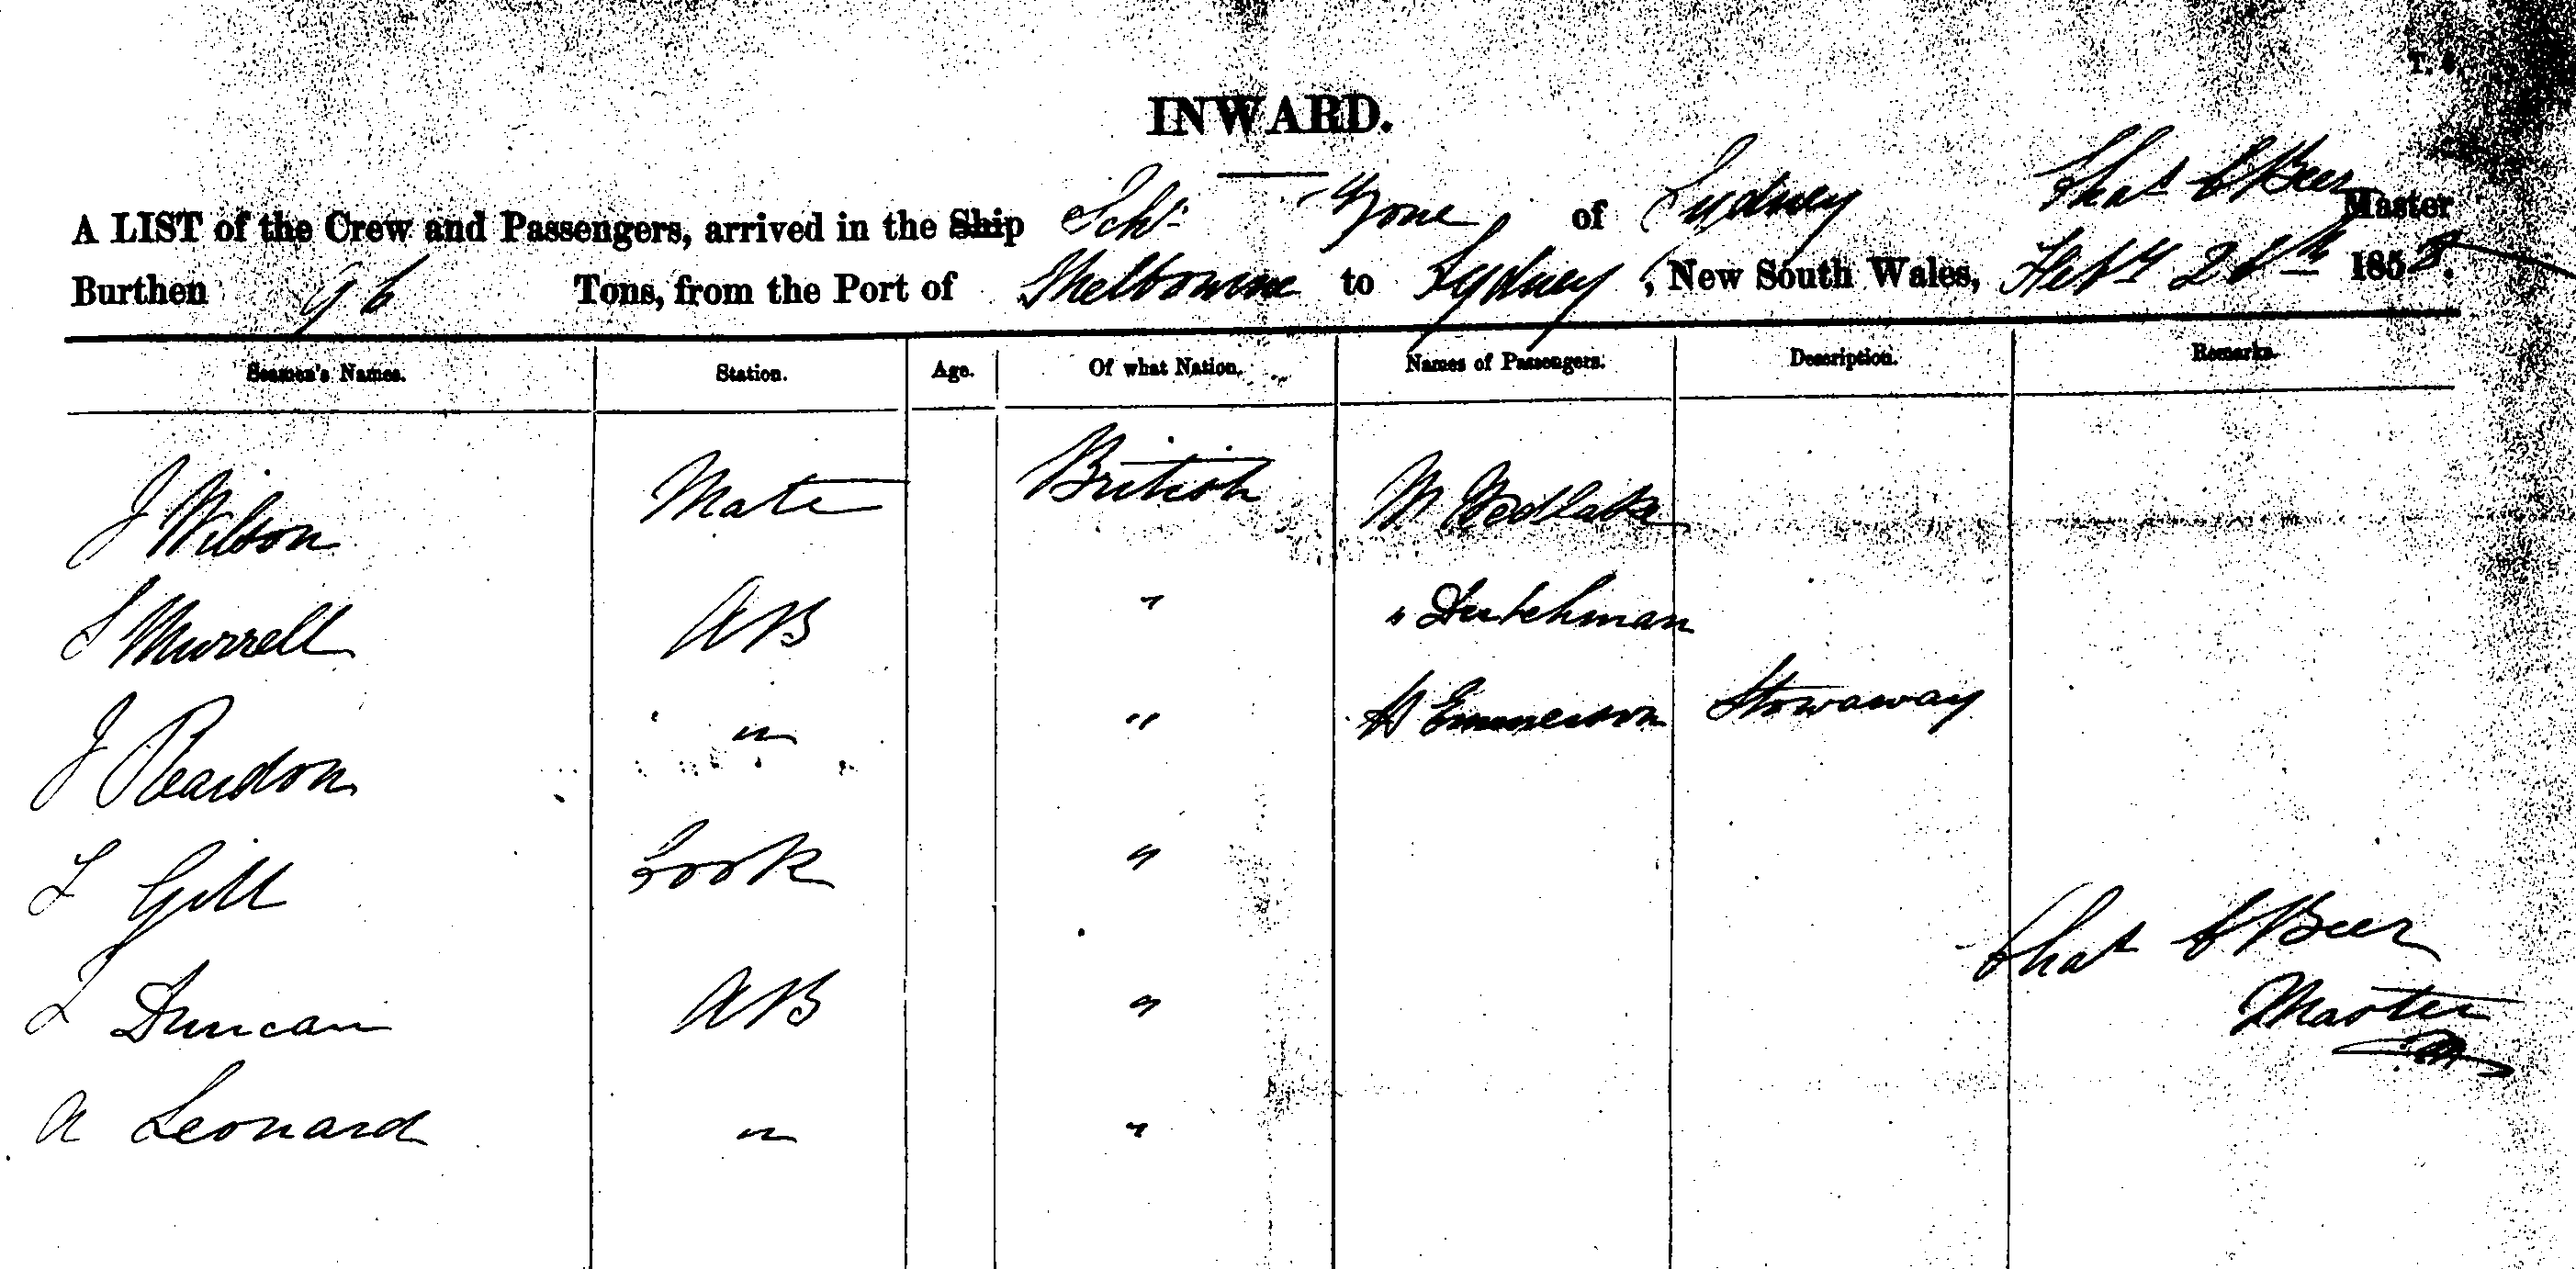 INWARD.
A LIST of the Crew and Passengers, arrived in the Ship Schr. of Sydney Chas C Beer Master
Burthen 96 Tons, from the Port of Melbourne to Sydney, New South Wales, Feby 28th 1858.
Seamen's Names. Station. Age. Of what Nation. Names of Passengers. Description. Remarks.
J Wilson Mate British Mr Wedlake
S Murrell AB " " Dutchman
J Reardon " " Emmerson Stowaway
T Gill Cook "
T Duncan AB "
A Leonard " "
Chas C Beer
Master